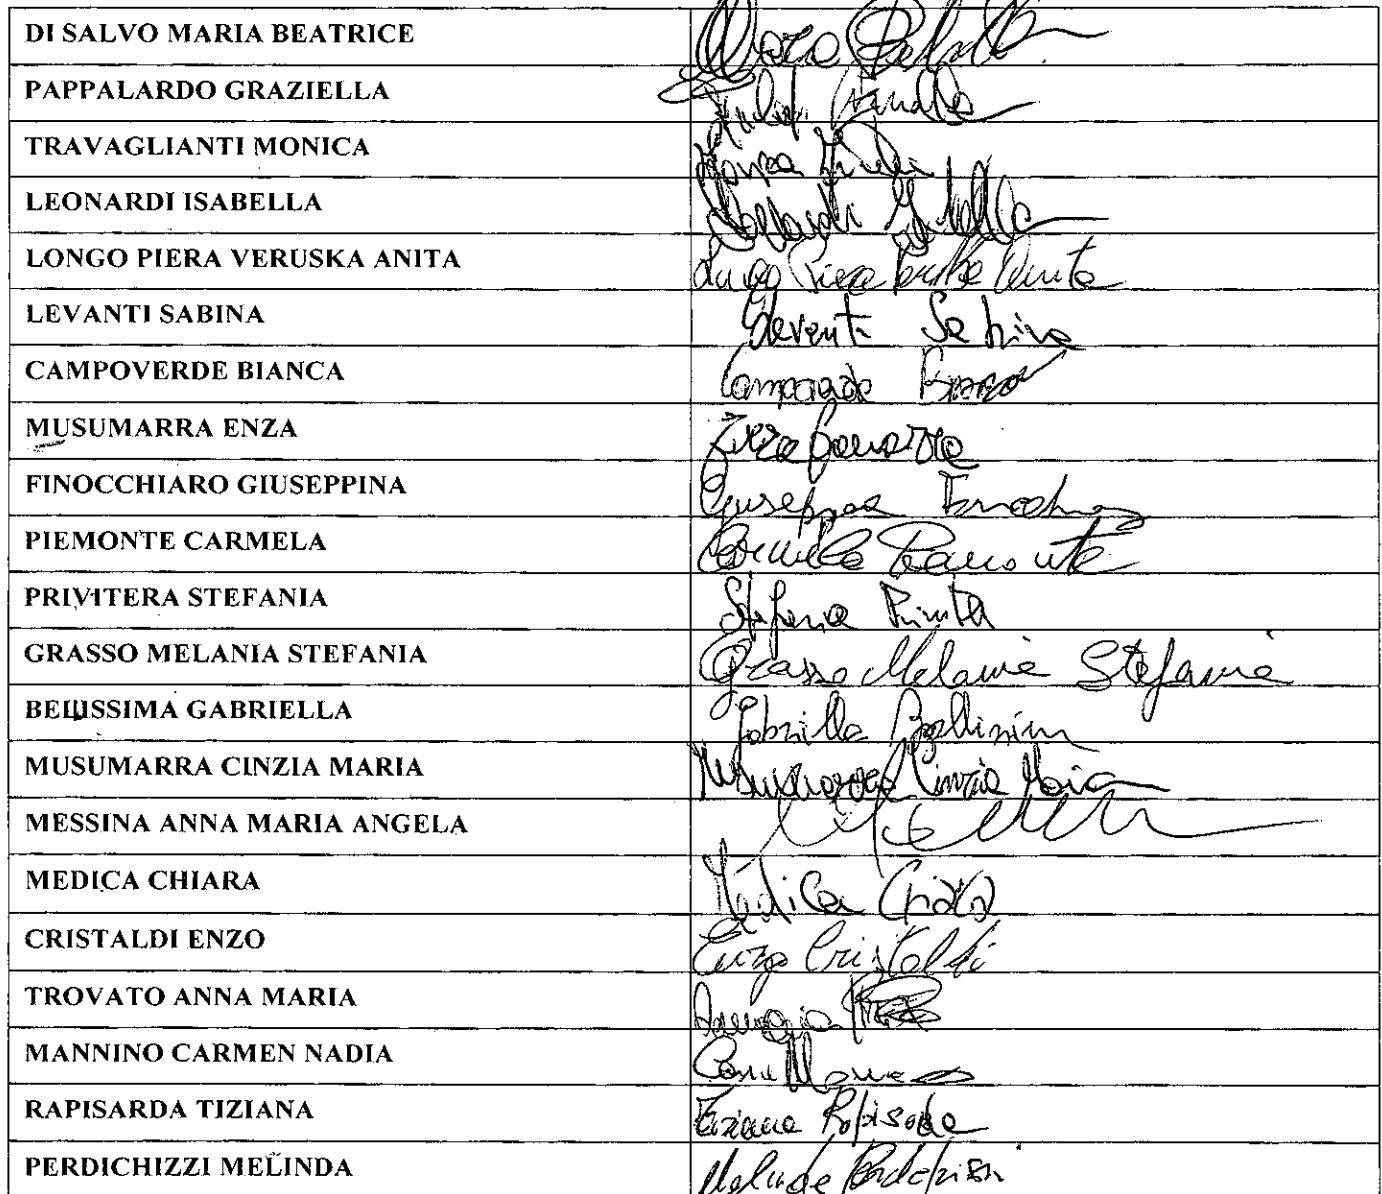 DI SALVO MARIA BEATRICE
PAPPALARDO GRAZIELLA
TRAVAGLIANTI MONICA
LEONARDI ISABELLA Leonardi Isabella
LONGO PIERA VERUSKA ANITA Longo Piera Anita
LEVANTI SABINA Levanti Sabina
CAMPOVERDE BIANCA
MUSUMARRA ENZA Enza
FINOCCHIARO GIUSEPPINA
PIEMONTE CARMELA Carmela Piemonte
PRIVITERA STEFANIA Stefania
GRASSO MELANIA STEFANIA Grasso Melania Stefania
BELLISSIMA GABRIELLA Gabriella
MUSUMARRA CINZIA MARIA Musumarra Cinzia Maria
MESSINA ANNA MARIA ANGELA
MEDICA CHIARA Medica Chiara
CRISTALDI ENZO Enzo Cristaldi
TROVATO ANNA MARIA
MANNINO CARMEN NADIA
RAPISARDA TIZIANA Tiziana Rapisarda
PERDICHIZZI MELINDA Melinda Perdichizzi